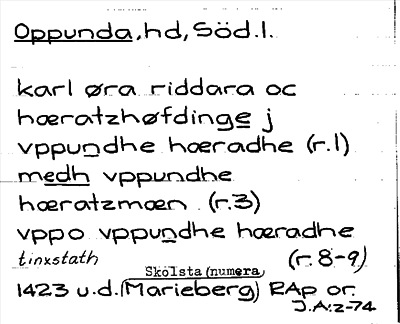 Oppunda, hd, Söd.l.
karl øra riddara oc
hæratzhøfdinge j
vppundhe hæradhe (r.1)
medh vppundhe
hæratzmæn (r.3)
vppo vppundhe hæradhe
tinxstath (r. 8-9)
Skölsta (numera
1423 u.d. (Marieberg) RAp or.
J.A:z-74